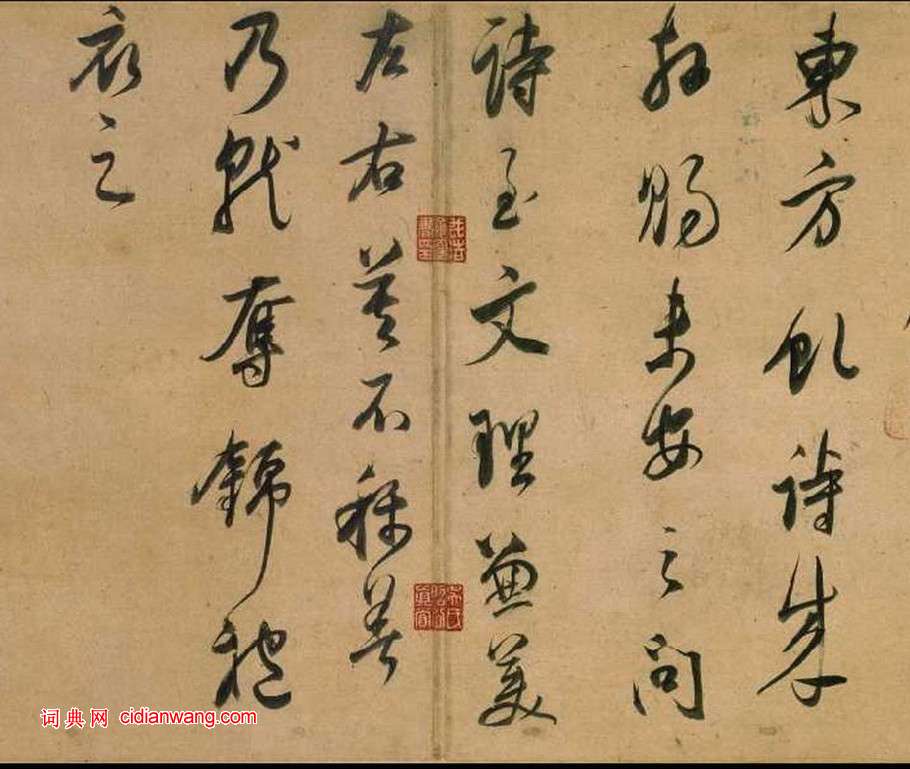 東方虬詩成
拜賜未安之間
詩至文理兼美
左右莫不稱善
乃就奪錦袍
衣之
词典网 cidianwang.com